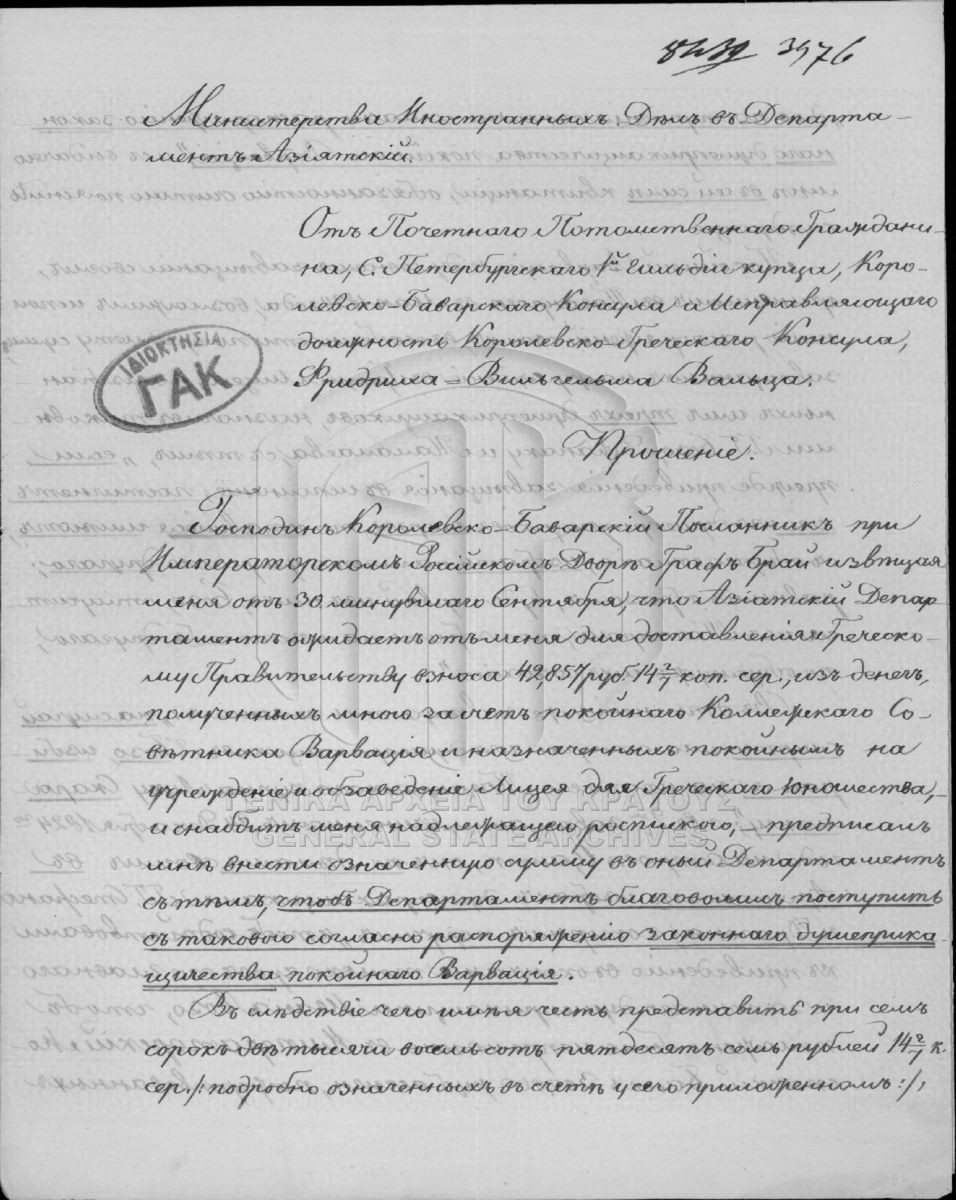 3976
Министерства Иностранныхъ Дѣлъ въ Департа-
ментъ Азіятскій.
Отъ Почетнаго Потомственнаго Граждани-
на, С. Петербургскаго 1й Гильдіи купца, Коро-
левско-Баварскаго Консула и Исправляющаго
должность Королевско-Греческаго Консула,
Фридриха=Вильгельма Вальца.
ΙΔΙΟΚΤΗΣΙΑ
ΓΑΚ
Прошеніе.
Господинъ Королевско-Баварскій Посланникъ при
Императорскомъ Россійскомъ Дворѣ Графъ Брай извѣщая
меня отъ 30 минувшаго Сентября, что Азіатскій Депар-
таментъ ожидаетъ отъ меня для доставленія Греческо-
му Правительству взноса 42,857 руб. 14 2/7 коп. сер., изъ денегъ,
полученныхъ мною за счетъ покойнаго Коллежскаго Со-
вѣтника Варвація и назначенныхъ покойнымъ на
учрежденіе и обзаведеніе Лицея для Греческаго Юношества,-
ΓΕΝΙΚΑ ΑΡΧΕΙΑ ΤΟΥ ΚΡΑΤΟΥΣ
и снабдитъ меня надлежащею роспискою, – предписалъ
GENERAL STATE ARCHIVES
мнѣ внести означенную сумму въ оный Департаментъ
съ тѣмъ, чтобъ Департаментъ благоволилъ поступить
съ таковою согласно распоряженію законнаго душеприка-
щичества покойнаго Варвація.
Въ слѣдствіе чего имѣя честь представить при семъ
сорокъ двѣ тысячи восемь сотъ пятдесятъ семь рублей 14 2/7 к.
сер. /: подробно означенныхъ въ счетѣ у сего приложенномъ :/,